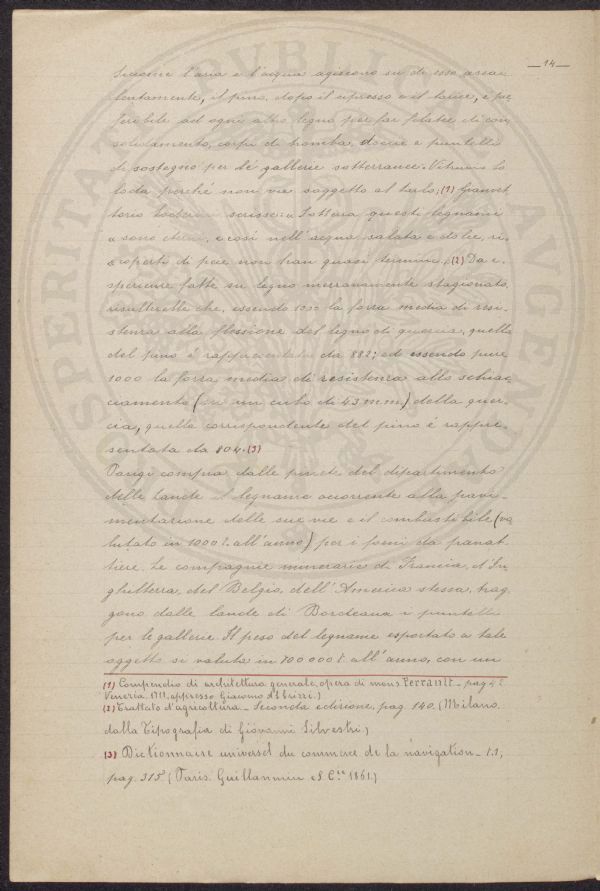 —14—
Siccome l'aria e l'acqua agiscono su di esso assai
lentamente, il pino, dopo il cipresso e il larice, è pre
feribile ad ogni altro legno per far filate di con
solidamento, corpi di tromba, doccie e puntelli
di sostegno per le gallerie sotterranee. Vitruvio lo
loda perché non va soggetto al tarlo; (1) Gianvet
torio Soderini scrisse: « Sotterra questi legnami
« sono eterni, e così nell'acqua salata e dolce, ri,
« coperti di pece non han quasi termine, (2) Da e,
sperienze fatte su legno mezzanamente stagionato
risulterebbe che, essendo 1000 la forza media di resi-
stenza alla flessione del legno di quercia, quella
del pino è rappresentata da 882; ed essendo pure
1000 la forza media di resistenza allo schiac
ciamento (su un cubo di 43 m.m.) della quer-
cia, quella corrispondente del pino è rappre-
sentata da 804. (3)
Parigi compra dalle pinete del dipartimento
delle Lande il legname occorrente alla pavi-
mentazione delle sue vie e il combustibile (va
lutato in 1000 t. all'anno) per i forni da panat-
tiere. Le compagnie minerarie di Francia, d'In
ghilterra, del Belgio, dell'America stessa, trag
gono dalle lande di Bordeaux i puntelli
per le gallerie. Il peso del legname esportato a tale
oggetto si valuta in 700000 t. all'anno, con un
(1) Compendio di architettura generale, opera di mons. Perrault - pag. 42
Venezia. 1711, appresso Giacomo Albrizzi.)
(2) Trattato d'agricoltura - Seconda edizione, pag. 140. (Milano.
dalla Tipografia di Giovanni Silvestri.)
(3) Dictionnaire universel du commerce de la navigation - t.1,
pag. 315 (Paris. Guillaumin et C.ie 1861.)
PROSPERITATI PVBLICAE AVGENDAE